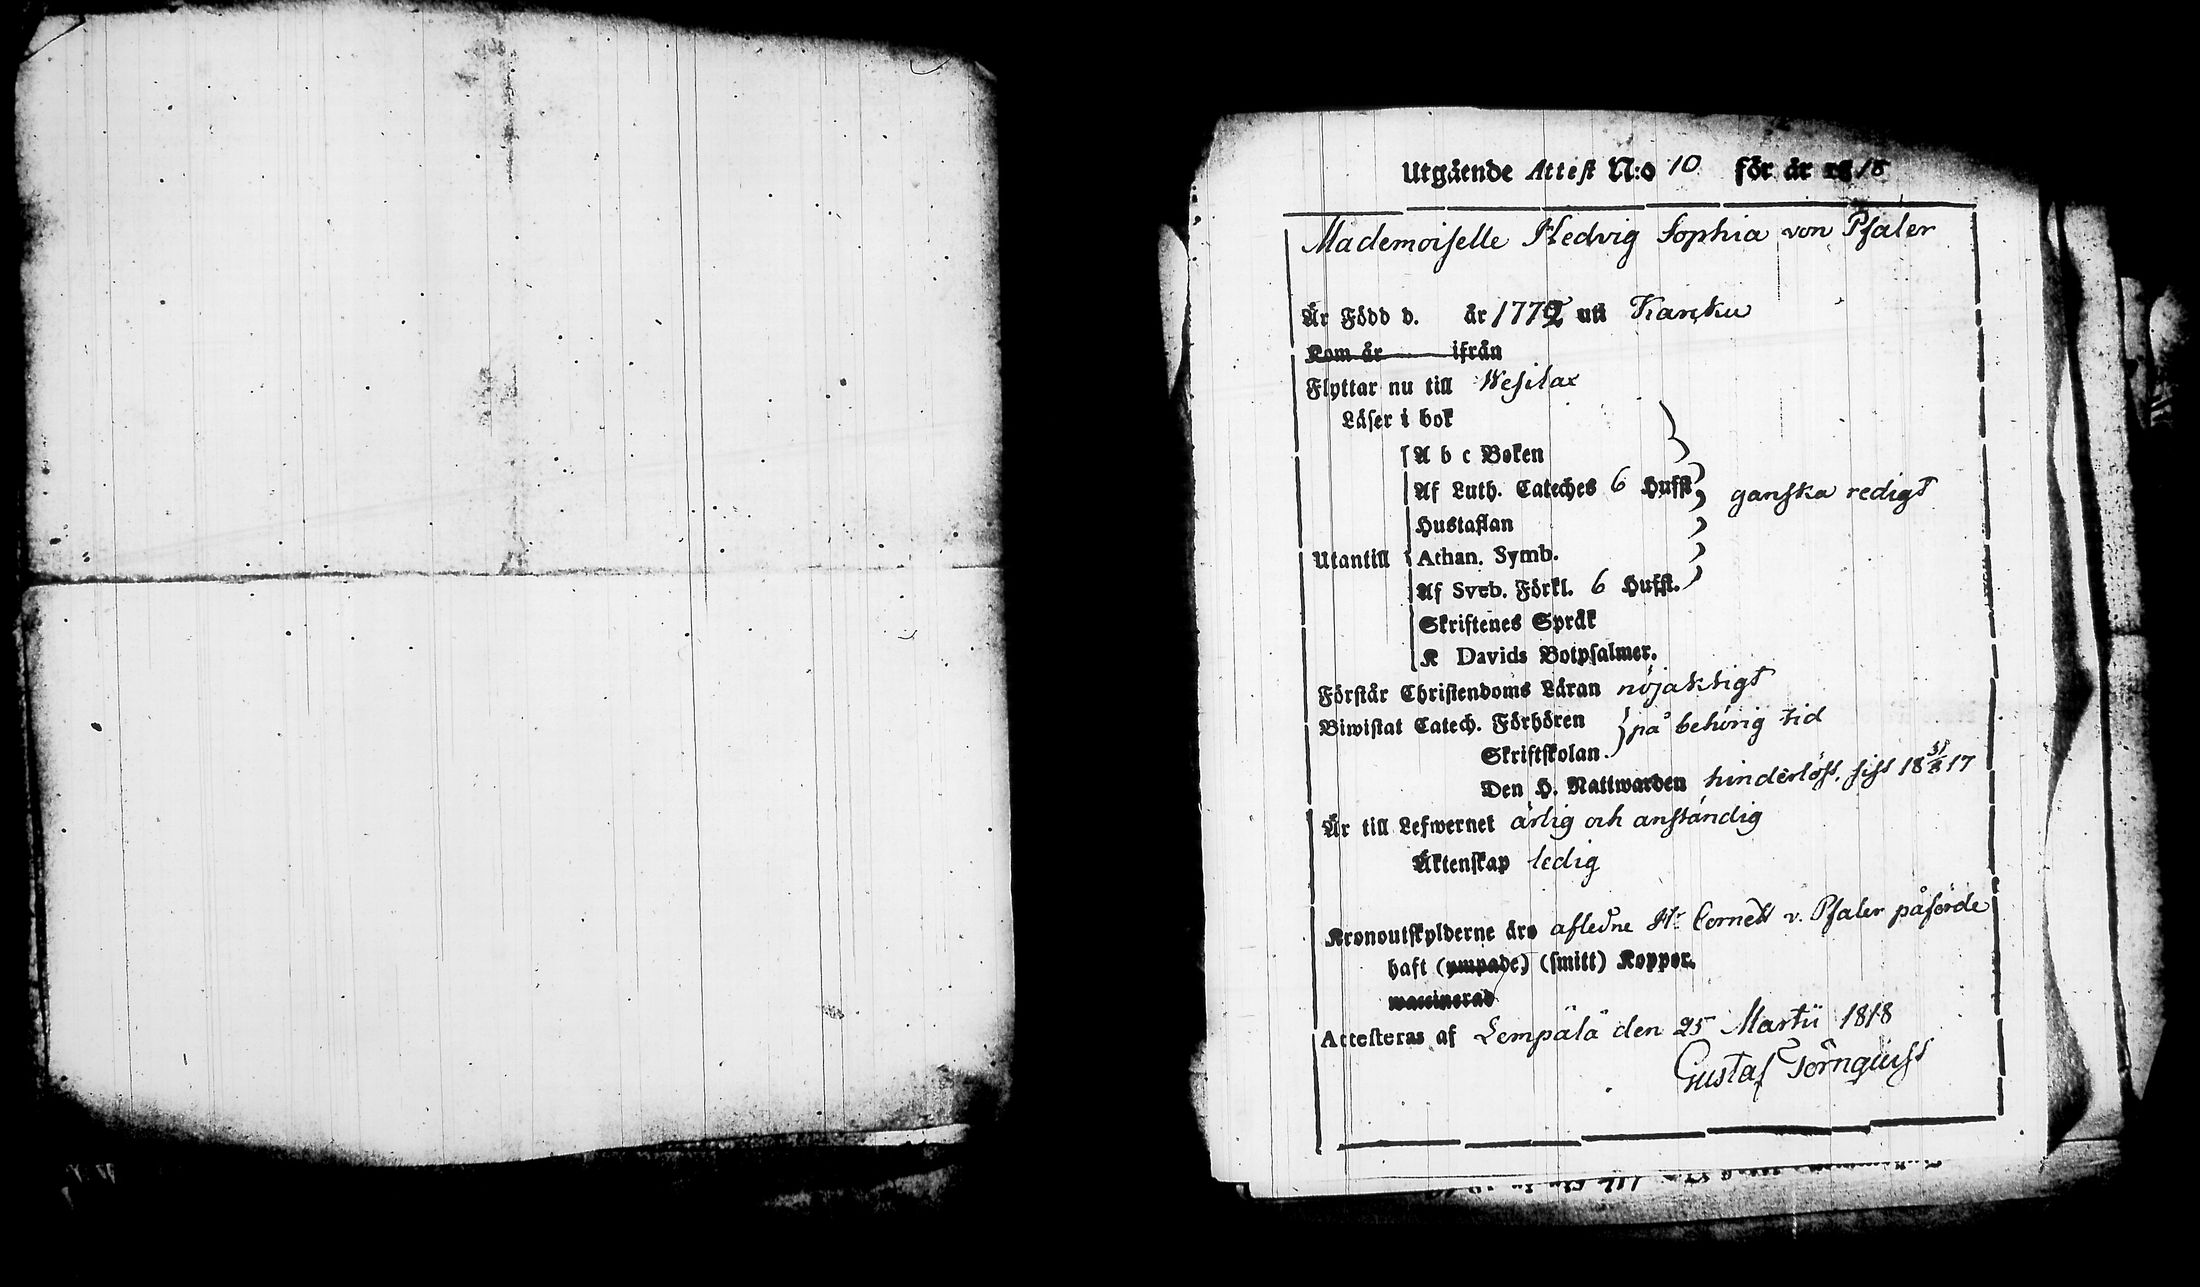 Utgående Attest N:o 10 för år 1818
Mademoiselle Hedvig Sophia von Pfaler
Är Född d. år 1772 uti Kanku
Kom år ifrån
Flyttar nu till Wesilax
Läser i bok
A b c Boken
Af Luth. Cateches 6 Hufst ganska redigt
Hustaflan
Utantill Athan. Symb.
Af Sveb. Förkl. 6 Hufst.
Skriftenes Språk
K Davids Botpsalmer.
Förstår Christendoms Läran nöjaktigt
Biwistat Catech. Förhören på behörig tid
Skriftskolan.
Den H. Nattwarden hinderlöst, sist 18 31/8 17
Är till Lefwernet ärlig och anständig
Äktenskap ledig
Kronoutskylderne äro afledne Hr Cornett v. Pfaler påförde
haft (ympade) (smitt) Koppor.
waccinerad
Attesteras af Lempälä den 25 Martii 1818
Gustaf Törnquist